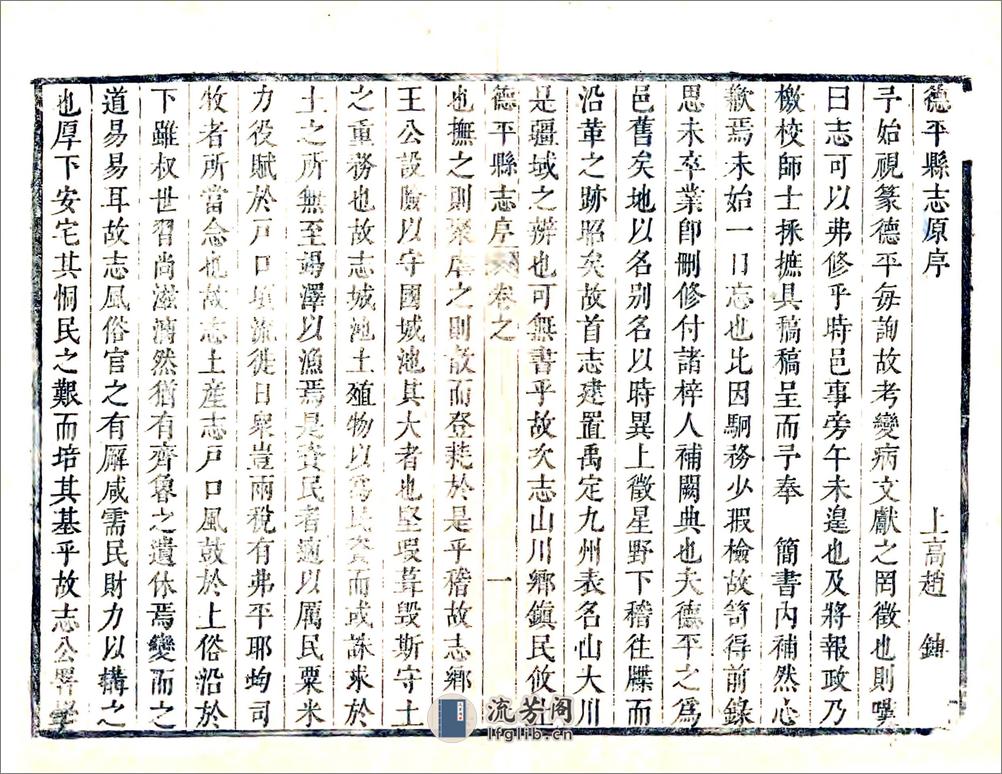 德平縣志原序
上高趙 鈽
予始視篆德平每詢故考變病文獻之罔徵也則嘆
曰志可以弗修乎時邑事旁午未遑也及將報政乃
檄校師士採摭具稿稿呈而予奉 簡書內補然心
歉焉未始一日忘也比因駉務少瑕檢故笥得前錄
思未卒業卽刪修付諸梓人補闕典也夫德平之爲
邑舊矣地以名别名以時異上徵星野下稽往牒而
沿革之跡照矣故首志建置禹定九州表名山大川
是疆域之辨也可無書乎故次志山川鄉鎮民攸
德平縣志序 卷之 一
也撫之則聚虐之則散而登耗於是乎稽故志鄉
王公設險以守國城池其大者也堅瑕葺毀斯守土
之重務也故志城池土殖物以爲民資而或誅求於
土之所無至竭澤以漁焉是資民者適以厲民粟米
力役賦於戶口頃流徙日衆豈兩稅有弗平耶均司
牧者所當念也故志土産志戶口風鼓於上俗沿於
下雖叔世習尚滋漓然猶有齊魯之遺休焉變而之
道易易耳故志風俗官之有廨咸需民財力以構之
也厚下安宅其恫民之艱而培其基乎故志公署學
流芳阁
lfglib.cn